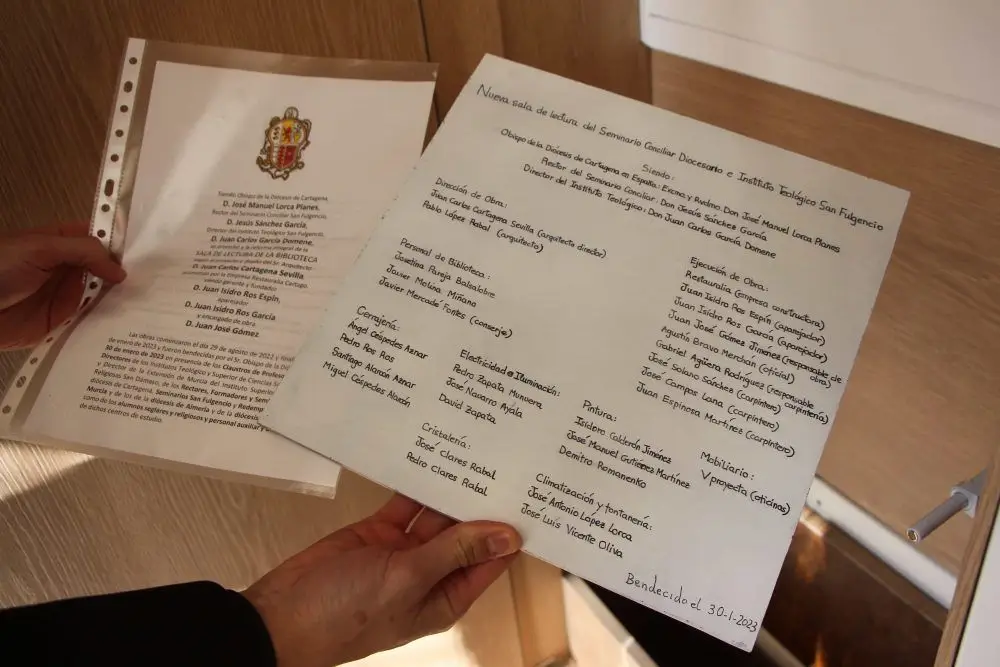 Siendo Obispo de la Diócesis de Cartagena,
D. José Manuel Lorca Planes,
Rector del Seminario Conciliar San Fulgencio,
D. Jesús Sánchez García,
Director del Instituto Teológico San Fulgencio,
D. Juan Carlos García Domene,
se acometió a la reforma integral de la
SALA DE LECTURA DE LA BIBLIOTECA
D. Juan Carlos Cartagena Sevilla,
siendo gerente y fundador
D. Juan Isidro Ros Espín,
Aparejador
D. Juan Isidro Ros García
y encargado de obra,
D. Juan José Gómez
Las obras comenzaron el día 29 de agosto de 2022 y
de enero de 2023 y fueron bendecidas por el Sr. Obispo de la
30 de enero de 2023 en presencia de los Claustros de
Directores de los Institutos Teológico y Superior de Ciencias
y Director de la Extensión de Murcia del Instituto Superior
Religiosas San Dámaso, de los Rectores, Formadores y
diócesis de Cartagena, Seminarios San Fulgencio y
Murcia y de los de la diócesis de Almería y de la
como de los alumnos seglares y religiosos y personal auxiliar y
de dichos centros de estudio.
Nueva sala de lectura del Seminario Conciliar Diocesano e Instituto Teológico San Fulgencio
Siendo:
Obispo de la Diócesis de Cartagena en España: Excmo y Rvdmo. Don José Manuel Lorca Planes
Rector del Seminario Conciliar: Don Jesús Sánchez García
Director del Instituto Teológico: Don Juan Carlos García Domene
Dirección de Obra:
Juan Carlos Cartagena Sevilla (arquitecto director)
Pablo López Rabal (arquitecto)
Personal de Biblioteca:
Josefina Pareja Balsalobre
Javier Molina Miñano
Javier Mercadé Fontes (conserje)
Cerrajería:
Ángel Céspedes Aznar
Pedro Ros Ros
Santiago Alarcón Aznar
Miguel Céspedes Alarcón
Electricidad e Iluminación:
Pedro Zapata Munuera
José Navarro Ayala
David Zapata
Cristalería:
José Clares Rabal
Pedro Clares Rabal
Ejecución de Obra:
Restauralia (empresa constructora)
Juan Isidro Ros Espín (aparejador)
Juan Isidro Ros García (aparejador)
Juan José Gómez Jiménez (responsable de obra)
Agustín Bravo Merchán (oficial)
Gabriel Agüera Rodríguez (responsable carpintería)
José Solano Sánchez (carpintero)
José Campos Lana (carpintero)
Juan Espinosa Martínez (carpintero)
Pintura:
Isidoro Calderón Jiménez
José Manuel Gutiérrez Martínez
Demitro Romanenko
Mobiliario:
Vproyecta (oficinas)
Climatización y fontanería:
José Antonio López Lorca
José Luis Vicente Oliva
Bendecido el 30-1-2023